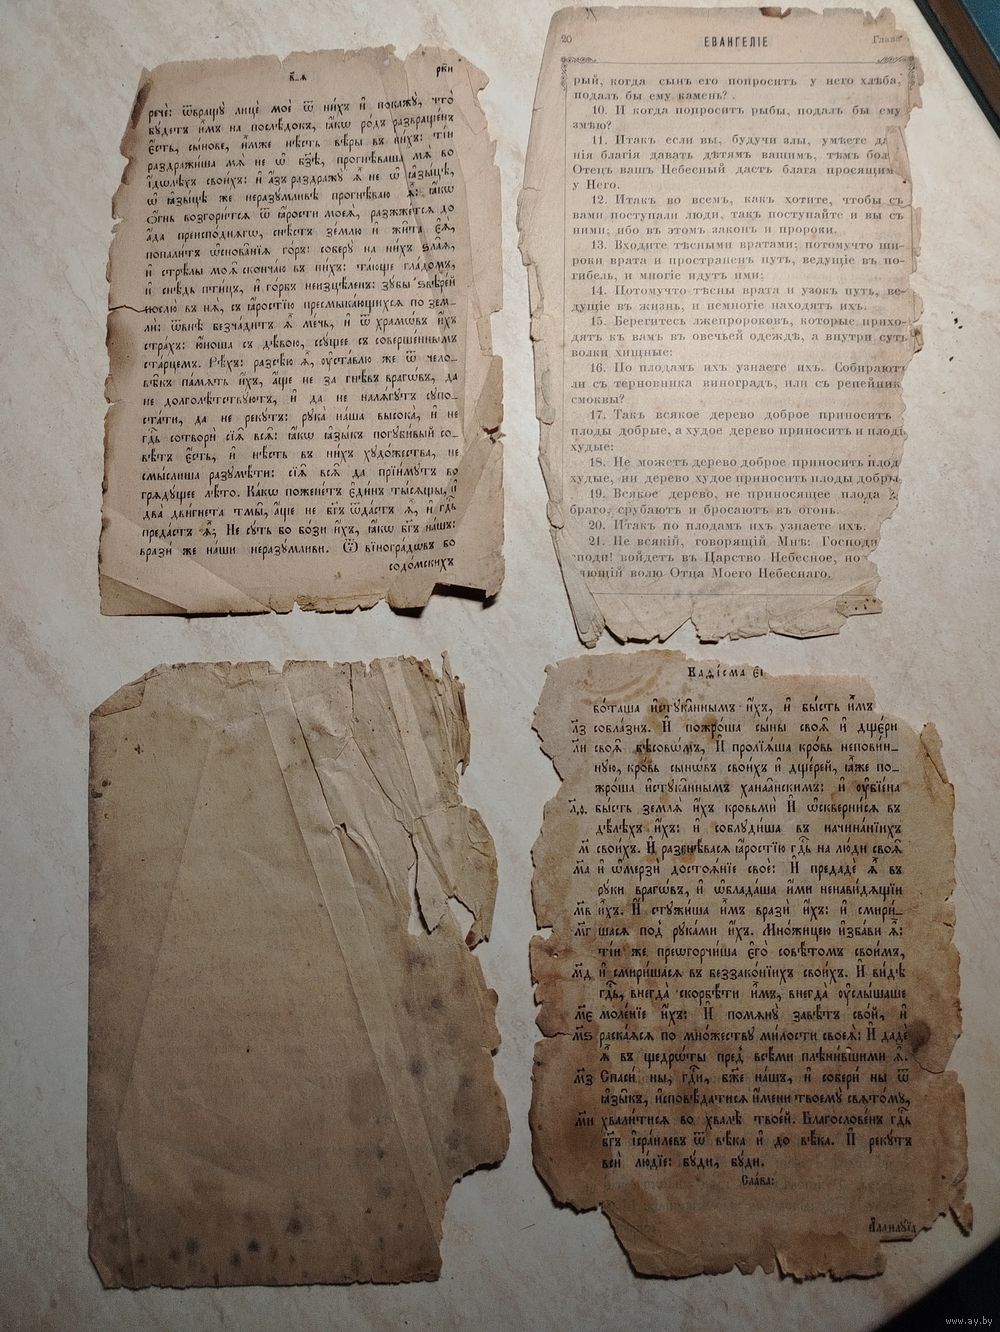 в҃_я
рече: ѿвращу лице мое ѿ ни́хъ и҆ покажу̀, что̀
бу́детъ и҆̀мъ на послѣ́докъ, ꙗ҆́кѡ ро́дъ развраще́нъ
є҆́сть, сы́нове, и҆̀мже нѣ́сть вѣ́ры въ ни́хъ: ті́и
раздражи́ша мѧ̀ не ѡ҆ бз҃ѣ, прогнѣ́ваша мѧ̀ во
і҆́дѡлѣхъ свои́хъ: и҆ а҆́зъ раздражу̀ ѧ҆̀ не ѡ҆ ꙗ҆зы́цѣ,
ѡ҆ ꙗ҆зы́цѣ же неразу́мливѣ прогнѣ́ваю ѧ҆̀: ꙗ҆́кѡ
ѻ҆́гнь возгори́тсѧ ѿ ꙗ҆́рости моеѧ̀, разжже́тсѧ до
а҆́да преиспо́днѧгѡ, снѣ́сть зе́млю и҆ жи̑та є҆ѧ̀,
попали́тъ ѡ҆снова̑нїѧ го́ръ: соберу̀ на ни́хъ ѕла̑ѧ,
и҆ стрѣ́лы моѧ̑ сконча́ю въ ни́хъ: та́юще гла́домъ,
и҆ снѣ́дь пти́цъ, и҆ го́рбъ неизцѣ́ленъ: зу́бы ѕвѣре́й
послю̀ въ нѧ̀, съ ꙗ҆́ростїю пресмыка́ющихсѧ по зем_
лѝ: ѿвнѣ̀ безча́дитъ ѧ҆̀ ме́чь, и҆ ѿ хра́мѡвъ и҆́хъ
стра́хъ: ю҆́ноша съ дѣ́вою, ссу́щее съ соверше́ннымъ
ста́рцемъ. Рѣ́хъ: разсѣ́ю ѧ҆̀, ѹ҆ста́влю же ѿ чело_
вѣ̑къ па́мѧть и҆́хъ, а҆́ще не за гнѣ́въ врагѡ́въ, да
не долголѣ́тствуютъ, и҆ да не налѧ́гутъ супо_
ста́ти, да не реку́тъ: рука̀ на́ша высока̀, и҆ не
гдⷭ҇ь сотворѝ сїѧ̑ всѧ̑: ꙗ҆́кѡ ꙗ҆зы́къ погуби́вый со_
вѣ́тъ є҆́сть, и҆ нѣ́сть въ ни́хъ худо́жества, не
смы́слиша разумѣ́ти: сїѧ̑ всѧ̑ да прїи́мутъ во
грѧду́щее лѣ́то. Ка́кѡ пожене́тъ є҆ди́нъ ты́сѧщы, и҆
два̀ дви́гнета тмы̑, а҆́ще не бг҃ъ ѿда́стъ ѧ҆̀, и҆ гдⷭ҇ь
предастъ ѧ҆̀; Не су́ть бо бо́зи и҆́хъ, ꙗ҆́кѡ бг҃ъ на́шъ:
врази́ же на́ши неразу́мливи. Ѿ вїногра́дѡвъ бо
содо́мскихъ
20 ЕВАНГЕЛІЕ Глава
рый, когда сынъ его попроситъ у него хлѣба,
подалъ бы ему камень?
10. И когда попроситъ рыбы, подалъ бы ему
змѣю?
11. Итакъ если вы, будучи злы, умѣете да
нія благія давать дѣтямъ вашимъ, тѣмъ бол
Отецъ вашъ Небесный дастъ блага просящим
у Него.
12. Итакъ во всемъ, какъ хотите, чтобы съ
вами поступали люди, такъ поступайте и вы съ
ними; ибо въ этомъ законъ и пророки.
13. Входите тѣсными вратами; потомучто ши-
роки врата и пространенъ путь, ведущіе въ по-
гибель, и многіе идутъ ими;
14. Потомучто тѣсны врата и узокъ путь, ве-
дущіе въ жизнь, и немногіе находятъ ихъ.
15. Берегитесь лжепророковъ, которые прихо-
дятъ къ вамъ въ овечьей одеждѣ, а внутри суть
волки хищные:
16. По плодамъ ихъ узнаете ихъ. Собирают
ли съ терновника виноградъ, или съ репейник
смоквы?
17. Такъ всякое дерево доброе приноситъ
плоды добрые, а худое дерево приноситъ и плоды
худые:
18. Не можетъ дерево доброе приносить плод
худые, ни дерево худое приносить плоды добры
19. Всякое дерево, не приносящее плода
браго, срубаютъ и бросаютъ въ огонь.
20. Итакъ по плодамъ ихъ узнаете ихъ.
21. Не всякій, говорящій Мнѣ: Господи
поди! войдетъ въ Царство Небесное, но
няющій волю Отца Моего Небеснаго.
Каѳі́сма є҃і
бо́таша и҆стука̑ннымъ и҆́хъ, и҆ бы́сть и҆̀мъ
л҃з собла́знъ. И҆ пожро́ша сы́ны своѧ̑ и҆ дще́ри
л҃и своѧ̑ бѣсовѡ́мъ, И҆ пролїѧ́ша кро́вь непови́н_
ную, кро́вь сынѡ́въ свои́хъ и҆ дще́рей, ꙗ҆̀же по_
жро́ша и҆стука̑ннымъ ханаа̑нскимъ: и҆ ѹ҆бїе́на
л҃ѳ. бы́сть землѧ̀ и҆́хъ кровьмѝ И҆ ѡ҆скверни́сѧ въ
дѣ́лѣхъ и҆́хъ: и҆ соблуди́ша въ начина́нїихъ
м҃ свои́хъ. И҆ разгнѣ́васѧ ꙗ҆́ростїю гдⷭ҇ь на лю́ди своѧ̑
м҃а и҆ ѡ҆мерзѝ достоѧ́нїе своѐ: И҆ предадѐ ѧ҆̀ въ
ру́ки врагѡ́въ, и҆ ѡ҆блада́ша и҆́ми ненави́дѧщїи
м҃в и҆́хъ. И҆ стужи́ша и҆̀мъ вразѝ и҆́хъ: и҆ смири́_
м҃г шасѧ под̾ рука́ми и҆́хъ. Мно́жицею и҆зба́ви ѧ҆̀:
ті́и же преѡгорчи́ша є҆го̀ совѣ́томъ свои́мъ,
м҃д и҆ смири́шасѧ въ беззако́нїихъ свои́хъ. И҆ ви́дѣ
гдⷭ҇ь, внегда̀ скорбѣ́ти и҆̀мъ, внегда̀ ѹ҆слы́шаше
м҃є моле́нїе и҆́хъ: И҆ помѧну̀ завѣ́тъ сво́й, и҆
м҃ѕ раска́ѧсѧ по мно́жеству ми́лости своеѧ̀: И҆ дадѐ
ѧ҆̀ въ щедрѡ́ты пред̾ всѣ́ми плѣни́вшими ѧ҆̀.
м҃з Спаси́ ны, гдⷭ҇и, бж҃е на́шъ, и҆ соберѝ ны ѿ
ꙗ҆зы̑къ, и҆сповѣ́датисѧ и҆́мени твоему̀ свѧто́му,
м҃и хвали́тисѧ во хвалѣ̀ твое́й. Благослове́нъ гдⷭ҇ь
бг҃ъ і҆и҃левъ ѿ вѣ́ка и҆ до вѣ́ка. И҆ реку́тъ
всѝ лю́дїе: бу́ди, бу́ди.
Сла́ва:
А҆ллилу́їа
www.ay.by